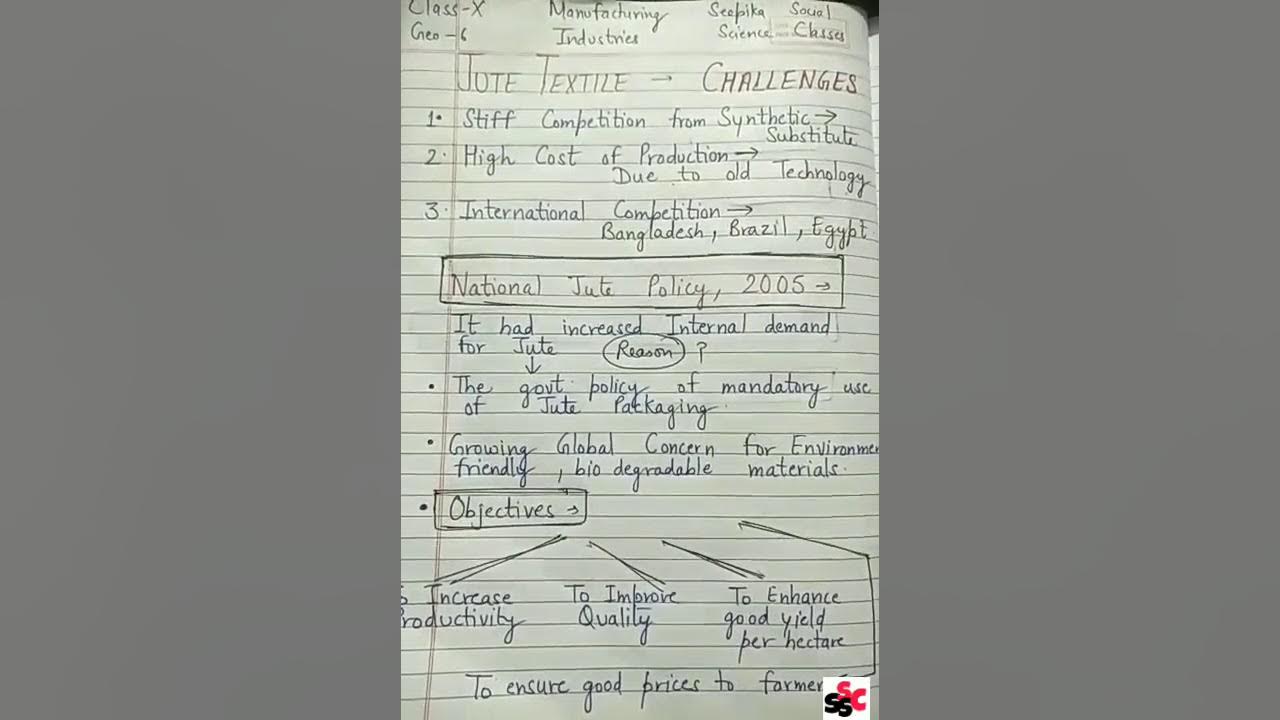 Class-X Manufacturing Seepika Social
Geo-6 Industries Science Classes
JUTE TEXTILE → CHALLENGES
1. Stiff Competition from Synthetic →
Substitute
2. High Cost of Production →
Due to old Technology
3. International Competition →
Bangladesh, Brazil, Egypt.
National Jute Policy, 2005 →
It had increased Internal demand
for Jute Reason ?
↓
• The govt. policy of mandatory use
of Jute Packaging.
• Growing Global Concern for Environmen
friendly, bio degradable materials.
• Objectives →
Increase To Improve To Enhance
roductivity Quality good yield
per hectare
To ensure good prices to farmer
SSSC